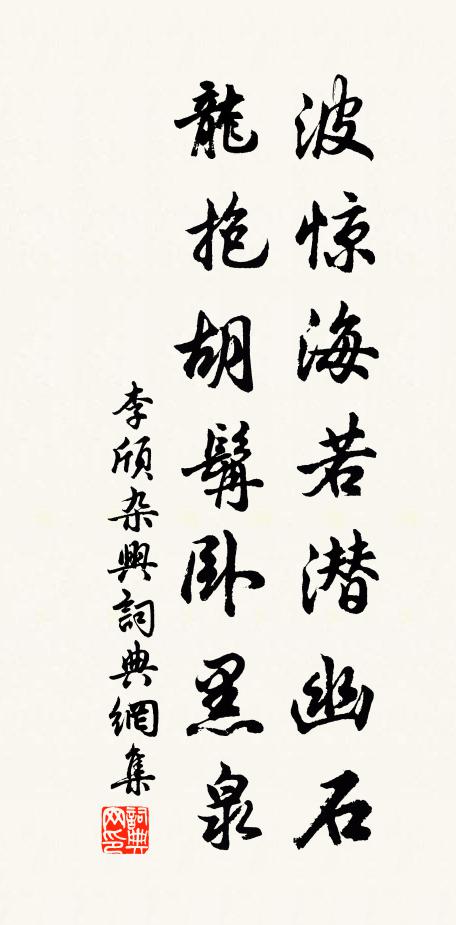 波惊海若潜幽石
龍抱胡髯卧黑泉
李頎杂興詞典網集
詞典
网印